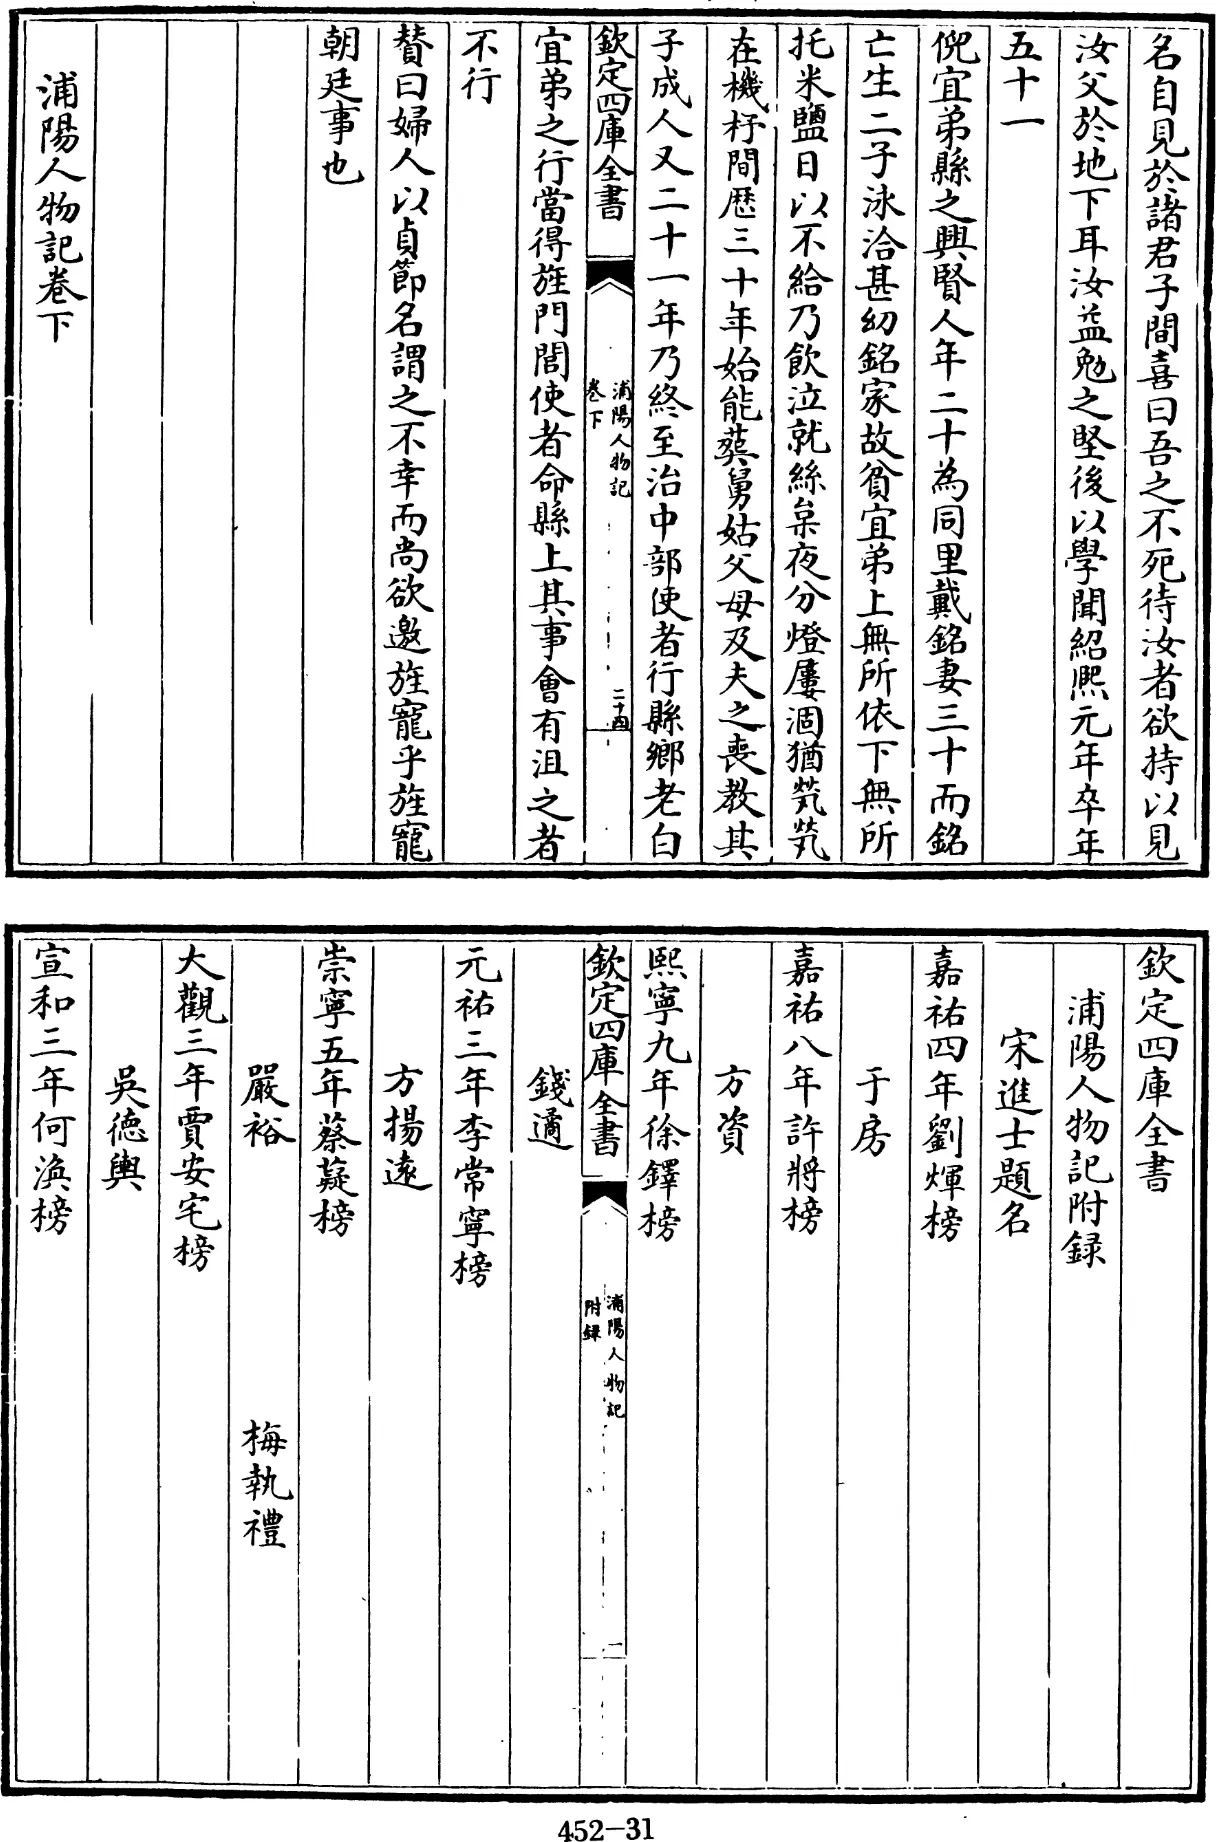 名自見於諸君子間喜曰吾之不死待汝者欲持以見
汝父於地下耳汝益勉之堅後以學聞紹熈元年卒年
五十一
倪宜弟縣之興賢人年二十為同里戴銘妻三十而銘
亡生二子泳洽甚幼銘家故貧宜弟上無所依下無所
托米鹽日以不給乃飲泣就絲枲夜分燈屢涸猶煢煢
在機杼間歴三十年始能葬舅姑父母及夫之喪教其
子成人又二十一年乃終至治中部使者行縣鄉老白
欽定四庫全書
浦陽人物記
卷下
二十四
宜弟之行當得旌門閭使者命縣上其事會有沮之者
不行
賛曰婦人以貞節名謂之不幸而尚欲邀旌寵乎旌寵
朝廷事也
浦陽人物記卷下
欽定四庫全書
浦陽人物記附録
宋進士題名
嘉祐四年劉煇榜
于房
嘉祐八年許將榜
方資
熙寧九年徐鐸榜
欽定四庫全書
浦陽人物記
附録
一
錢遹
元祐三年李常寧榜
方揚遠
崇寧五年蔡薿榜
嚴裕 梅執禮
大觀三年賈安宅榜
吳德輿
宣和三年何渙榜
452-31